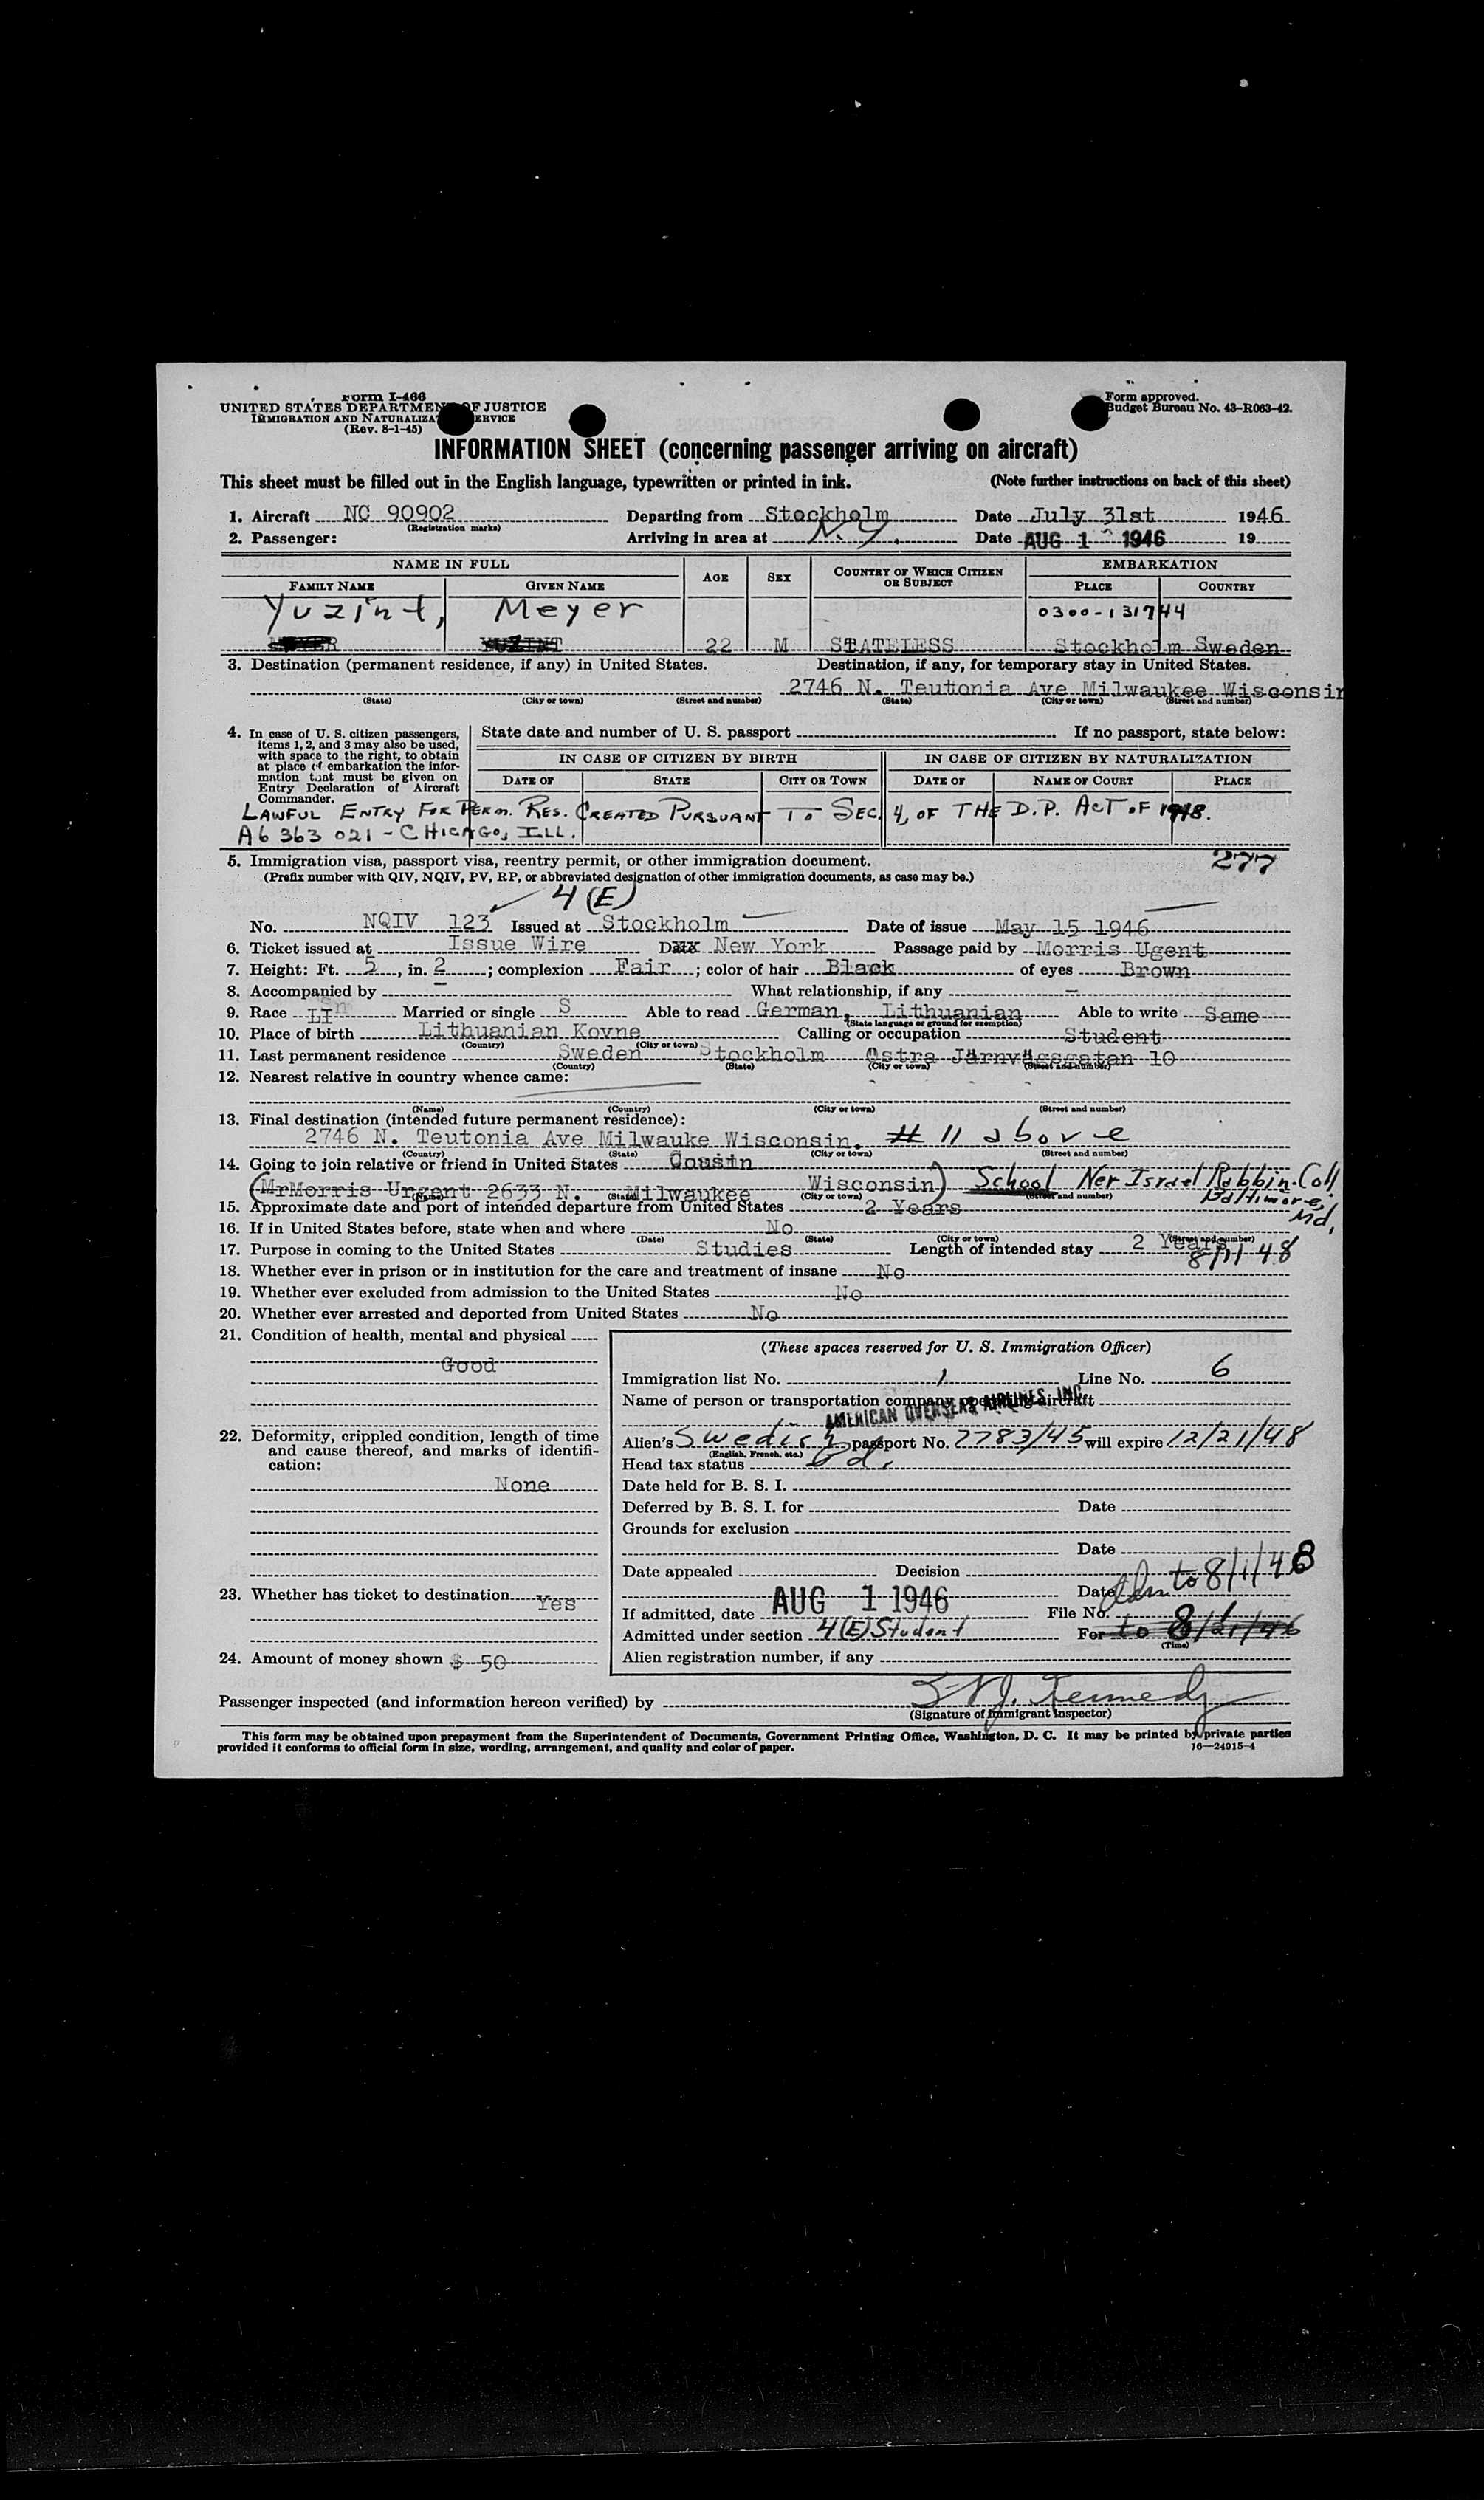 Form I-466
UNITED STATES DEPARTMENT OF JUSTICE
IMMIGRATION AND NATURALIZATION SERVICE
(Rev. 8-1-45)
Form approved.
Budget Bureau No. 43-R063-42.
INFORMATION SHEET (concerning passenger arriving on aircraft)
This sheet must be filled out in the English language, typewritten or printed in ink. (Note further instructions on back of this sheet)
1. Aircraft NC 90902 Departing from Stockholm Date July 31st 1946
(Registration marks)
2. Passenger: Arriving in area at N.Y. Date AUG 1 1946 19
NAME IN FULL AGE SEX COUNTRY OF WHICH CITIZEN OR SUBJECT EMBARKATION
FAMILY NAME GIVEN NAME PLACE COUNTRY
Yuzint, Meyer 0300-131744
22 M STATELESS Stockholm Sweden
3. Destination (permanent residence, if any) in United States. Destination, if any, for temporary stay in United States.
2746 N. Teutonia Ave Milwaukee Wisconsin
(State) (City or town) (Street and number) (State) (City or town) (Street and number)
4. In case of U. S. citizen passengers, items 1, 2, and 3 may also be used, with space to the right, to obtain at place of embarkation the information that must be given on Entry Declaration of Aircraft Commander.
State date and number of U. S. passport If no passport, state below:
IN CASE OF CITIZEN BY BIRTH IN CASE OF CITIZEN BY NATURALIZATION
DATE OF STATE CITY OR TOWN DATE OF NAME OF COURT PLACE
LAWFUL ENTRY FOR PERM. RES. CREATED PURSUANT TO SEC. 4, OF THE D.P. ACT OF 1948.
A6 363 021 - CHICAGO, ILL.
5. Immigration visa, passport visa, reentry permit, or other immigration document. 277
(Prefix number with QIV, NQIV, PV, RP, or abbreviated designation of other immigration documents, as case may be.)
4(E)
No. NQIV 123 Issued at Stockholm Date of issue May 15 1946
6. Ticket issued at Issue Wire New York Passage paid by Morris Ugent
7. Height: Ft. 5, in. 2; complexion Fair; color of hair Black of eyes Brown
8. Accompanied by - What relationship, if any -
9. Race LI Married or single S Able to read German, Lithuanian Able to write Same
(State language or ground for exemption)
10. Place of birth Lithuanian Kovne Calling or occupation Student
(Country) (City or town)
11. Last permanent residence Sweden Stockholm Östra Järnvägsgatan 10
(Country) (State) (City or town) (Street and number)
12. Nearest relative in country whence came:
(Name) (Country) (City or town) (Street and number)
13. Final destination (intended future permanent residence):
2746 N. Teutonia Ave Milwauke Wisconsin. # 11 above
(Country) (State) (City or town) (Street and number)
14. Going to join relative or friend in United States Cousin
(MrMorris Urgent 2633 N. Milwaukee Wisconsin) School Ner Israel Rabbin. Coll
Baltimore, Md.
(Name) (State) (City or town) (Street and number)
15. Approximate date and port of intended departure from United States 2 Years
16. If in United States before, state when and where No
(Date) (State) (City or town) (Street and number)
17. Purpose in coming to the United States Studies Length of intended stay 2 Years
8/1/48
18. Whether ever in prison or in institution for the care and treatment of insane No
19. Whether ever excluded from admission to the United States No
20. Whether ever arrested and deported from United States No
21. Condition of health, mental and physical
Good
22. Deformity, crippled condition, length of time and cause thereof, and marks of identification:
None
23. Whether has ticket to destination Yes
24. Amount of money shown $ 50
(These spaces reserved for U. S. Immigration Officer)
Immigration list No. 1 Line No. 6
Name of person or transportation company operating aircraft
AMERICAN OVERSEAS AIRLINES, INC.
Alien's Swedish passport No. 7783/45 will expire 12/21/48
(English, French, etc.)
Head tax status Pd.
Date held for B. S. I.
Deferred by B. S. I. for Date
Grounds for exclusion
Date
Date appealed Decision
Date Adm to 8/1/48
If admitted, date AUG 1 1946 File No.
Admitted under section 4(E) Student For to 8/1/46
(Time)
Alien registration number, if any
Passenger inspected (and information hereon verified) by Kennedy
(Signature of Immigrant Inspector)
This form may be obtained upon prepayment from the Superintendent of Documents, Government Printing Office, Washington, D. C. It may be printed by private parties
provided it conforms to official form in size, wording, arrangement, and quality and color of paper. 16—24915-4